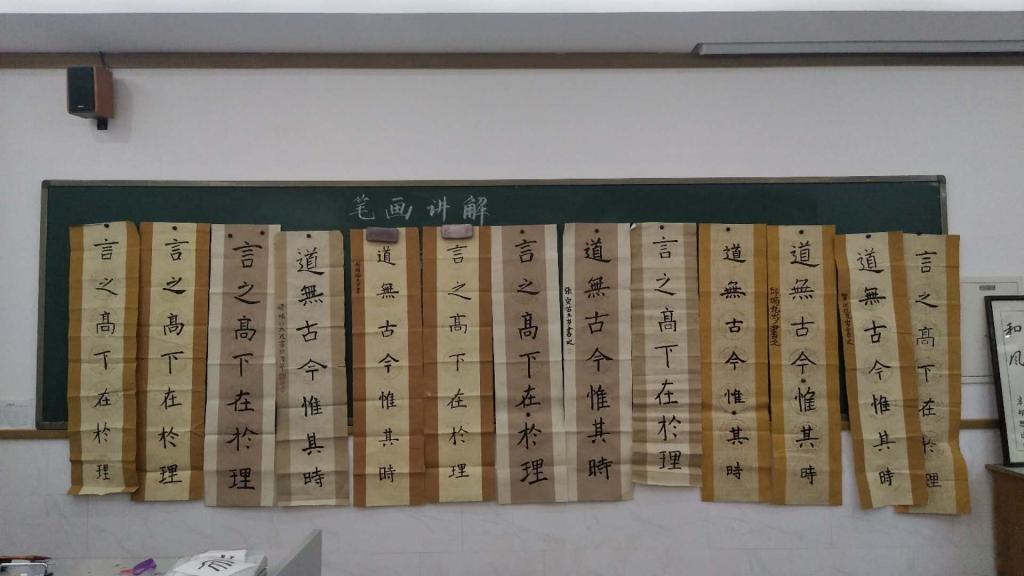 笔画讲解
言之高下在於理
言之高下在於理
言之高下在於理
道無古今惟其時
道無古今惟其時
言之高下在於理
言之高下在於理
道無古今惟其時
言之高下在於理
道無古今惟其時
道無古今惟其時
道無古今惟其時
言之高下在於理
和風